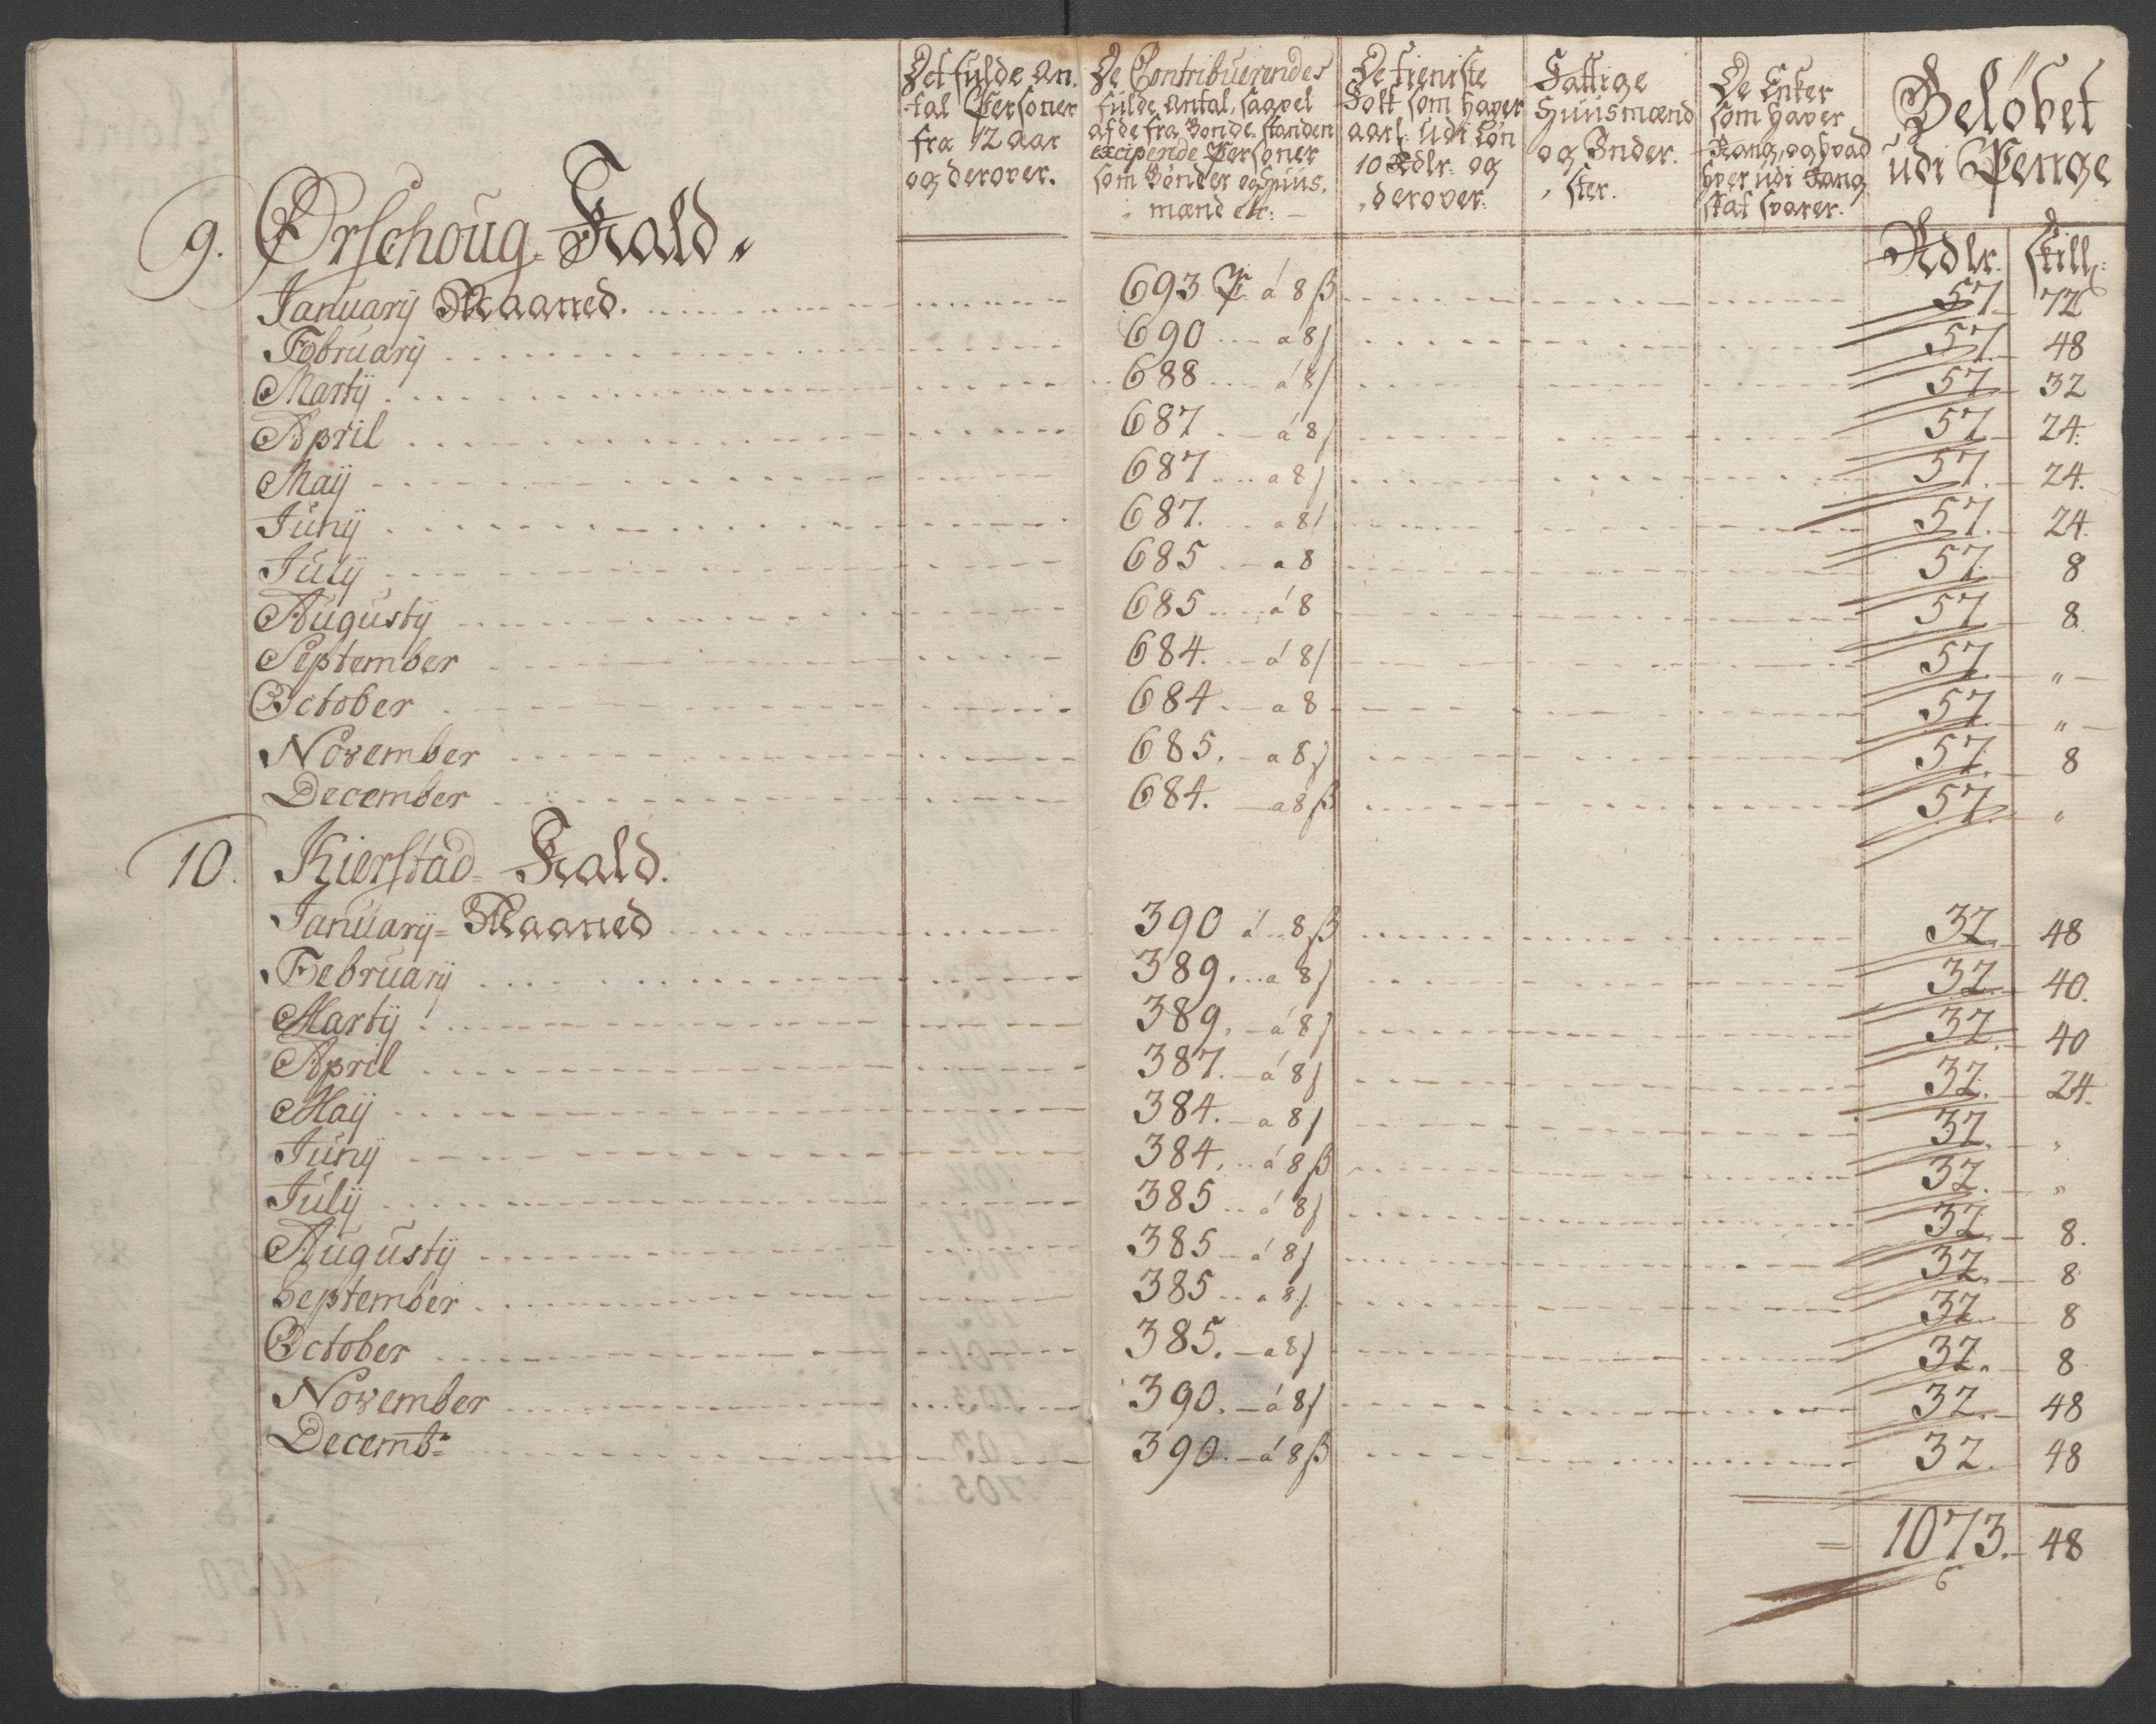 Det fulde An-
tal Personer
fra 12 Aar
og derover.
De Contribuerendes
fulde Antal, saavel
af de fra Bonde-standen
excipende Personer
som Bønder og Huus-
mænd etc: —
De tieniste
Folk som haver
aarl: udi Løn
10 Rdlr: og
derover.
Fattige
Huusmænd
og Inder-
ster.
De Enker
som haver
Rang, og hvad
hver udi Rang
skat svarer.
Beløbet
udi Penge
Rdlr. Skill:
9. Ørschoug-Kald.
January Maaned. 693 P. á 8 ß 57 72
February 690 a 8 ß 57 48
Martij 688 á 8 ß 57 32
April 687 á 8 ß 57 24.
Maij 687 a 8 ß 57. 24.
Junij 687. a 8 ß 57. 24.
Julij 685 a 8 57 8
Augustij 685 á 8 57 8.
September 684. á 8 ß 57 "
October 684 a 8 57 "
November 685. a 8 ß 57. 8
December 684. a 8 ß 57. "
10. Kierstad-Kald.
Januarij-Maaned 390 á 8 ß 32 48
Februarij 389. a 8 ß 32. 40.
Martij 389. á 8 ß 32. 40
April 387. á 8 ß 32. 24.
Maij 384. a 8 ß 32. "
Junij 384. á 8 ß 32. "
Julij 385 á 8 ß 32 8.
Augustij 385 á 8 ß 32. 8
September 385 a 8 ß 32 8
October 385. a 8 ß 32. 8
November 390. á 8 ß 32. 48
Decembr 390. á 8 ß 32. 48
= 1073. 48